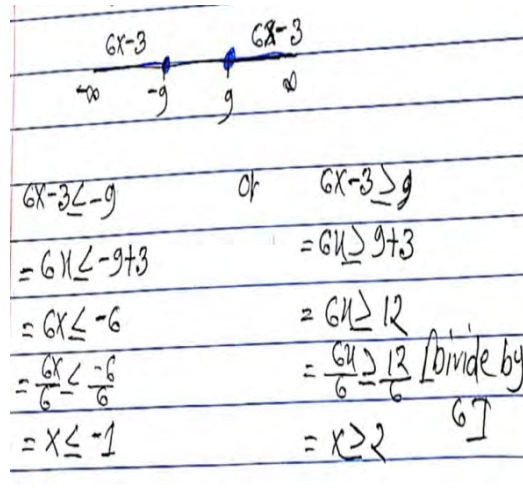 6x-3 6x-3
-∞ -9 9 ∞
6x-3≤-9 or 6x-3≥9
=6x≤-9+3 =6x≥9+3
=6x≤-6 =6x≥12
=6x/6≤-6/6 =6x/6≥12/6 [Divide by
6]
=x≤-1 =x≥2